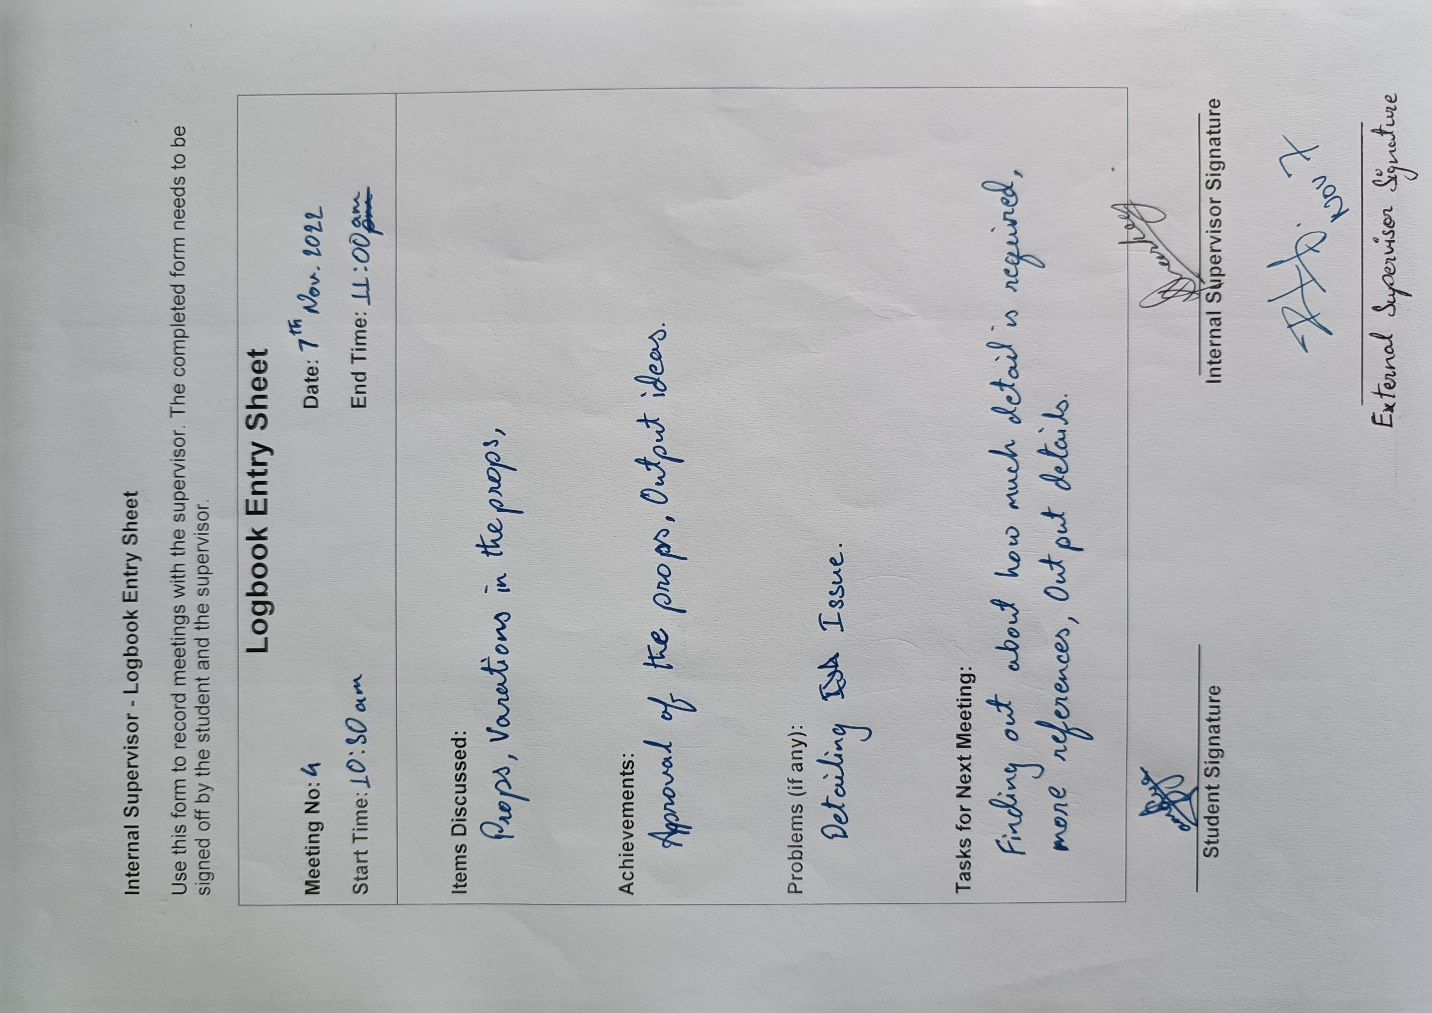 Internal Supervisor - Logbook Entry Sheet
Use this form to record meetings with the supervisor. The completed form needs to be
signed off by the student and the supervisor.
Logbook Entry Sheet
Meeting No: 4 Date: 7th Nov. 2022
Start Time: 10:30 am End Time: 11:00 am
Items Discussed:
Props, Variations in the props,
Achievements:
Approval of the props, Output ideas.
Problems (if any):
Detailing Issue.
Tasks for Next Meeting:
Finding out about how much detail is required,
more references, Output details.
Student Signature Internal Supervisor Signature
Nov 7
External Supervisor Signature